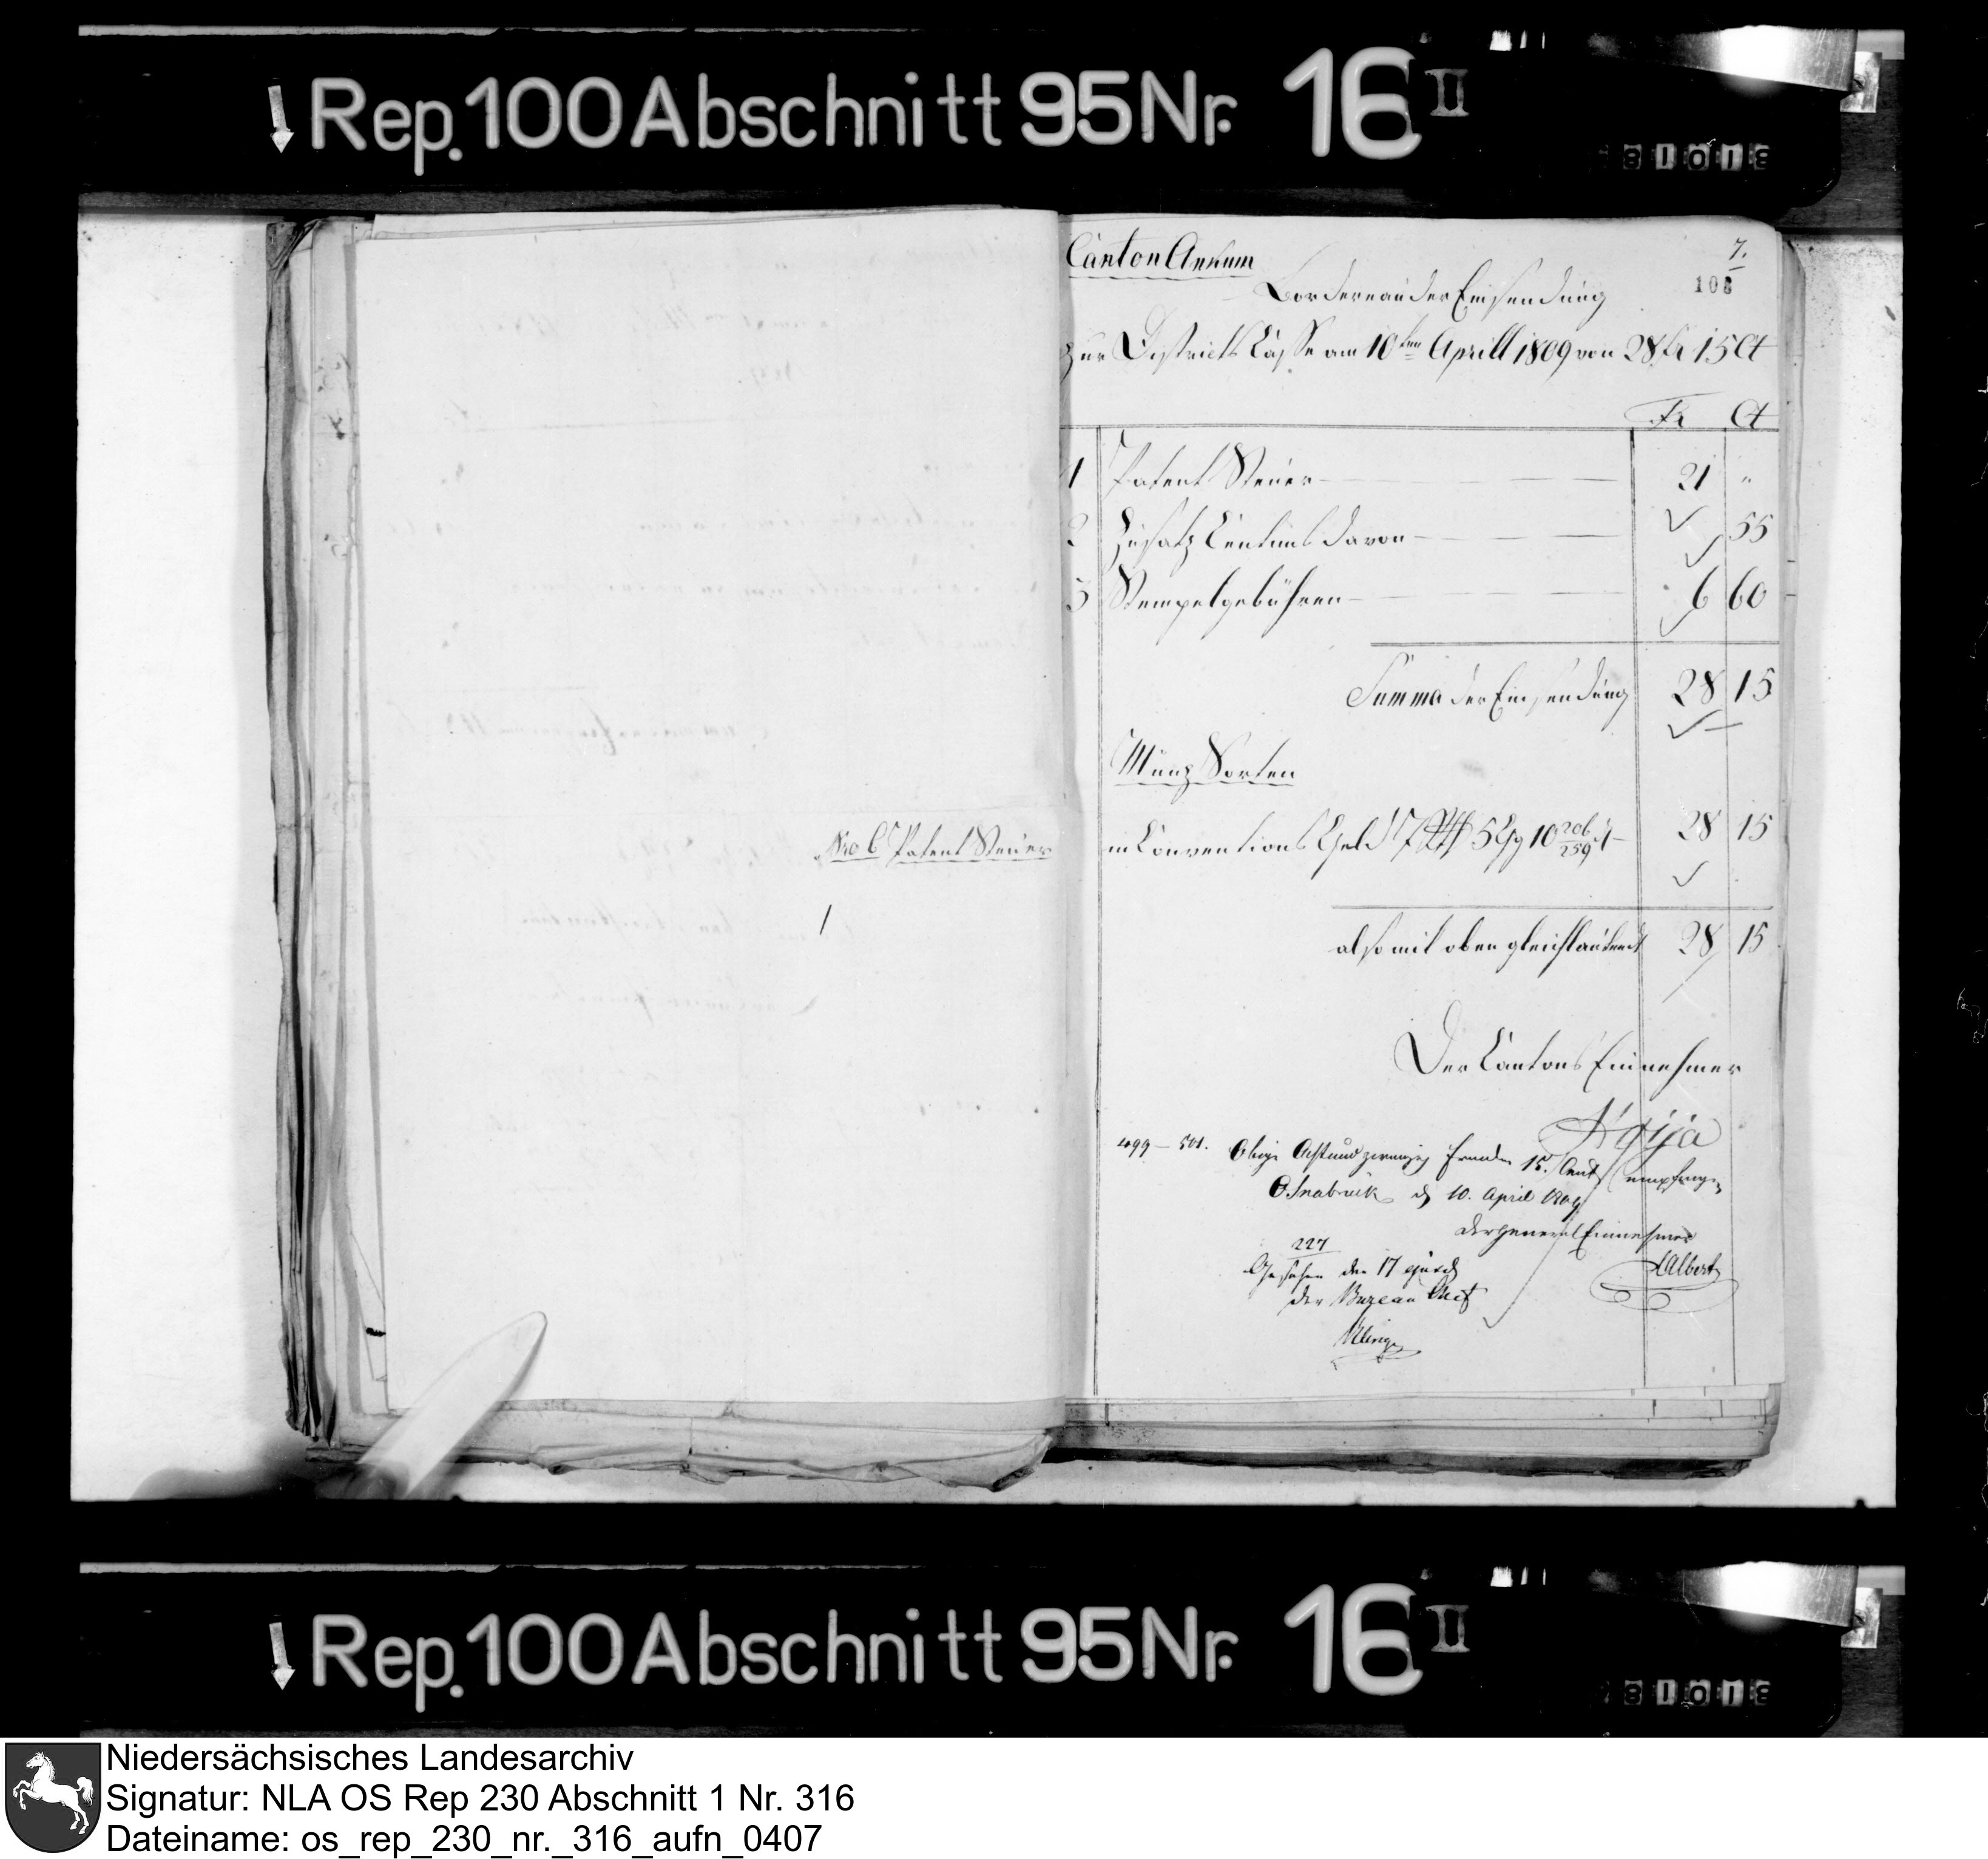 Rep. 100 Abschnitt 95 Nr. 16 II
Canton Ankum
7.
108
Bordereau der Einsendung
zur Districts Casse am 10ten Aprill 1809 von 28 Fr 15 Ct
Fr Ct
1 Patent Steuer 21 "
2 Zusatz Centims davon 55
3 Stempelgebühren 6 60
Summa der Einsendung 28 15
Münz Sorten
in Conventions Geld 7 Rtl 5 Gg 10 206/259 d 28 15
also mit oben gleichlautend 28 15
Nro 6 Patent Steuer
1
Der Cantons Einnehmer
499 – 501. Obige Achtundzwanzig Franken 15 Cent empfangen
Osnabrück d 10. April 1809
der General Einnehmer
Albert
227
Gesehen den 17 ejusd
der Bureau Chef
Rep. 100 Abschnitt 95 Nr. 16 II
Niedersächsisches Landesarchiv
Signatur: NLA OS Rep 230 Abschnitt 1 Nr. 316
Dateiname: os_rep_230_nr._316_aufn_0407